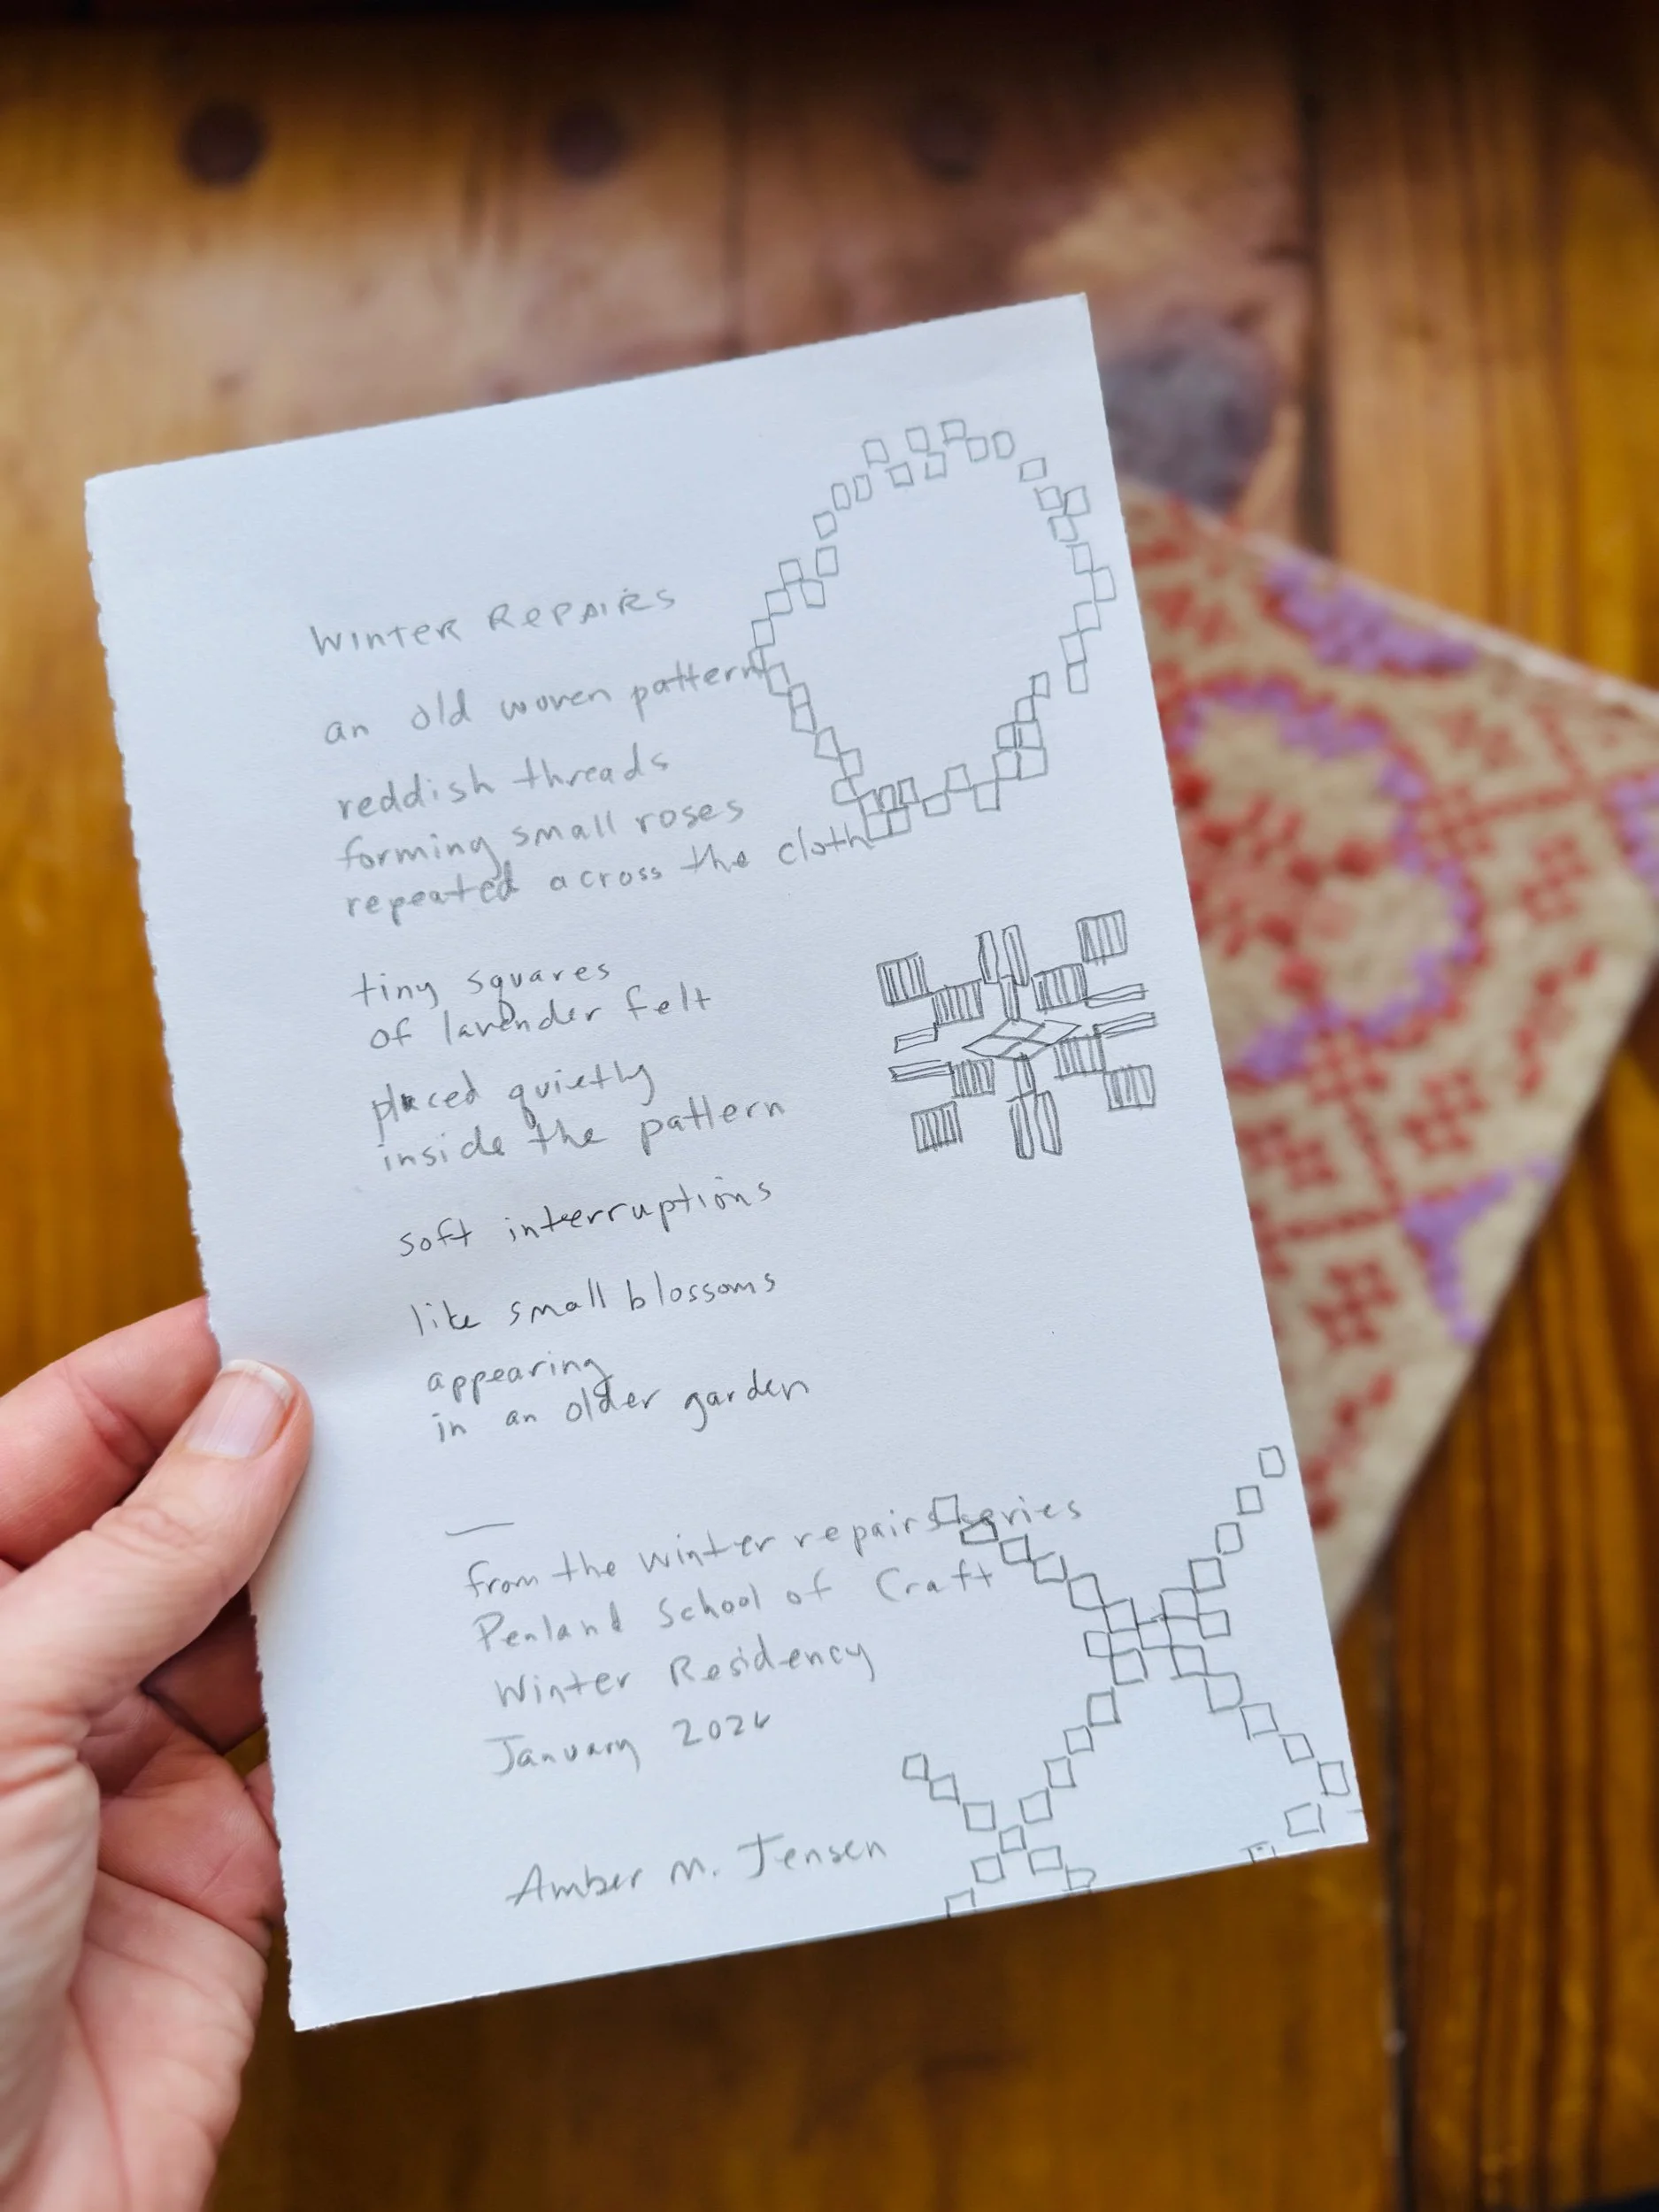 WINTER REPAIRS
an old woven pattern
reddish threads
forming small roses
repeated across the cloth
tiny squares
of lavender felt
placed quietly
inside the pattern
soft interruptions
like small blossoms
appearing
in an older garden
—
from the winter repairs series
Penland School of Craft
Winter Residency
January 2026
Amber M. Jensen